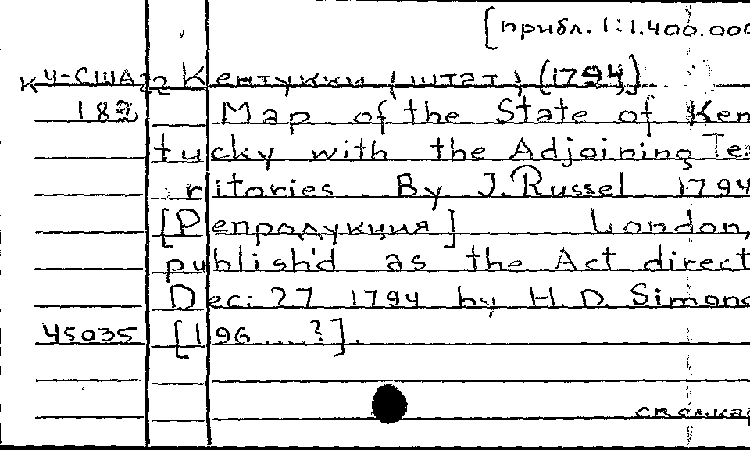 [прибл. 1:1.400.000
К 4-США Кентукки (штат) (1794)
182 Map of the State of Ken
tucky with the Adjoining Te
ritories By J. Russel 1794
[Репродукция] London,
publish'd as the Act direct
Dec: 27 1794 by H. D. Simons
45035 [196....?].
см.